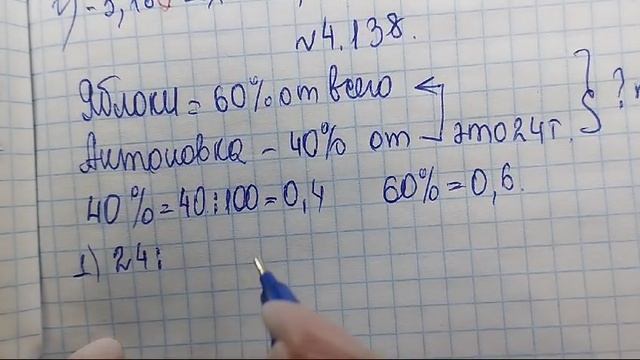 №4.138.
Яблоки = 60% от всего
Антоновка - 40% от это 24т. ?
40% = 40:100 = 0,4 60% = 0,6.
1) 24: